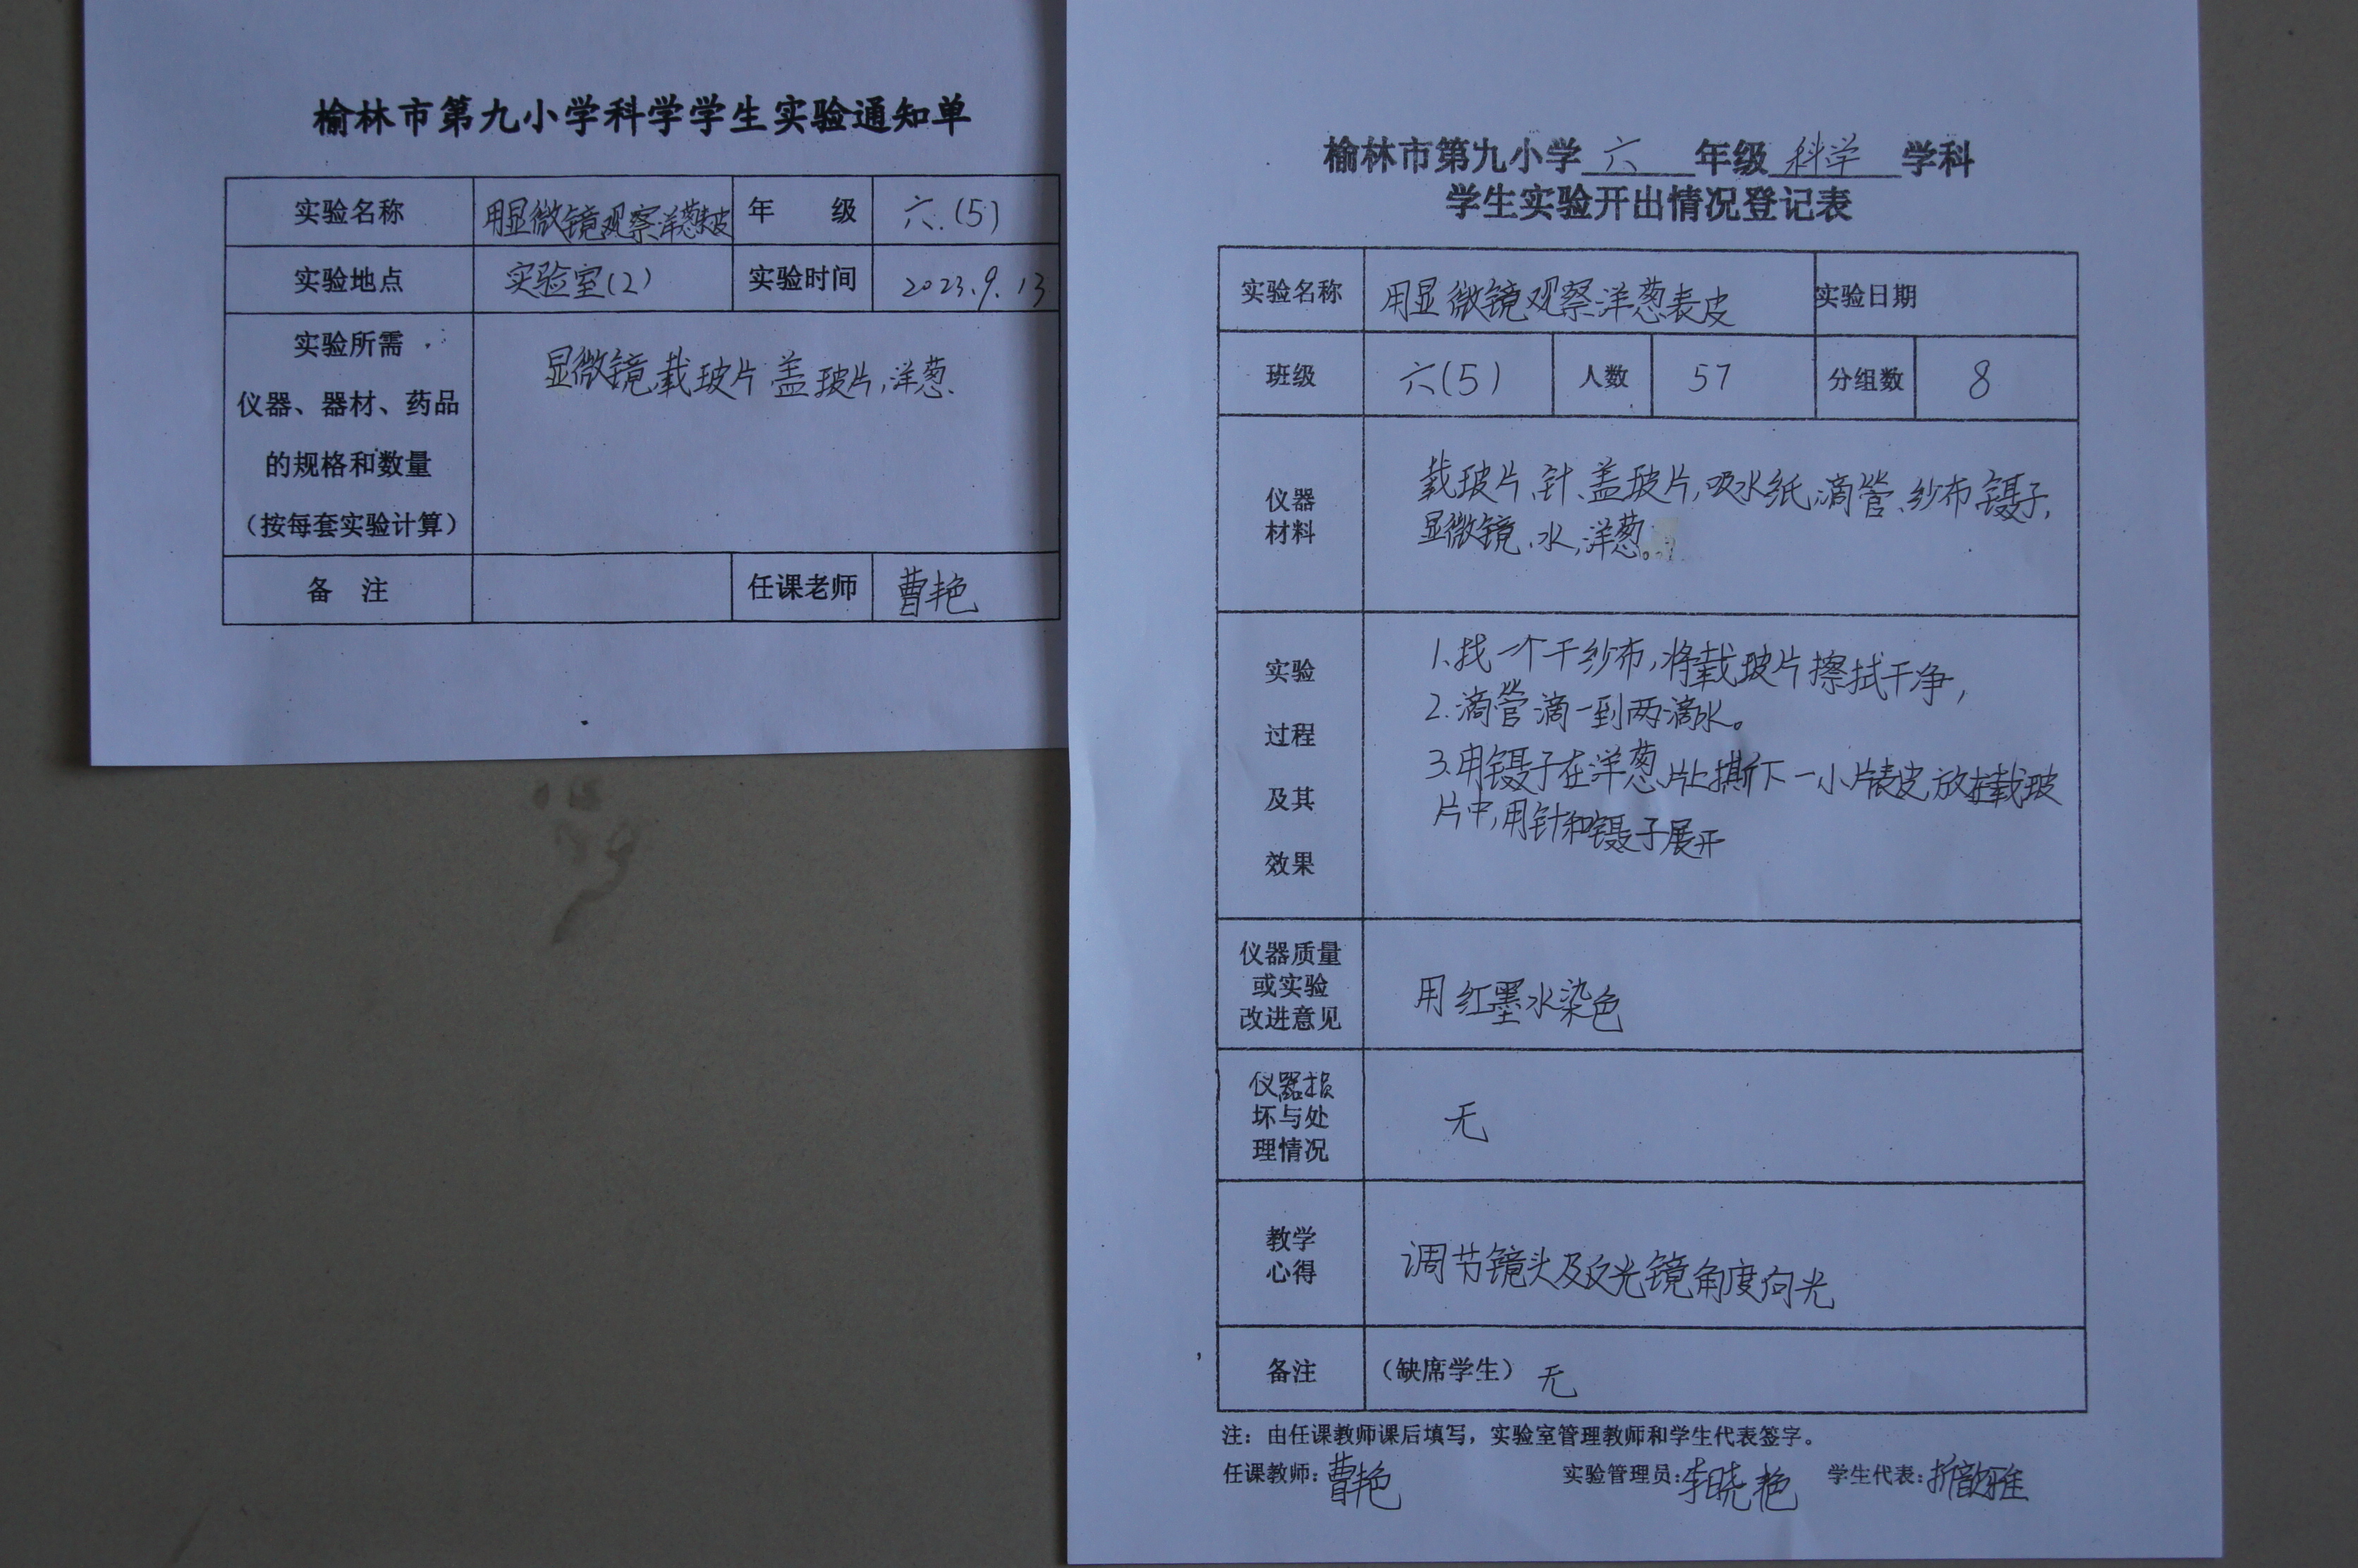 榆林市第九小学科学学生实验通知单
实验名称 用显微镜观察洋葱表皮 年 级 六.(5)
实验地点 实验室(2) 实验时间 2023.9.13
实验所需
仪器、器材、药品
的规格和数量
(按每套实验计算)
显微镜,载玻片 盖玻片,洋葱.
备 注 任课老师 曹艳
榆林市第九小学 六 年级 科学 学科
学生实验开出情况登记表
实验名称 用显微镜观察洋葱表皮 实验日期
班级 六(5) 人数 57 分组数 8
仪器
材料
载玻片、针、盖玻片,吸水纸,滴管、纱布 镊子,
显微镜、水,洋葱。
实验
过程
及其
效果
1.找一个干纱布,将载玻片擦拭干净,
2.滴管滴一到两滴水。
3.用镊子在洋葱片上撕下一小片表皮放在载玻
片中,用针和镊子展开
仪器质量
或实验
改进意见
用红墨水染色
仪器损
坏与处
理情况
无
教学
心得
调节镜头及反光镜角度向光
备注 (缺席学生) 无
注：由任课教师课后填写，实验室管理教师和学生代表签字。
任课教师：曹艳 实验管理员：李晓艳 学生代表：